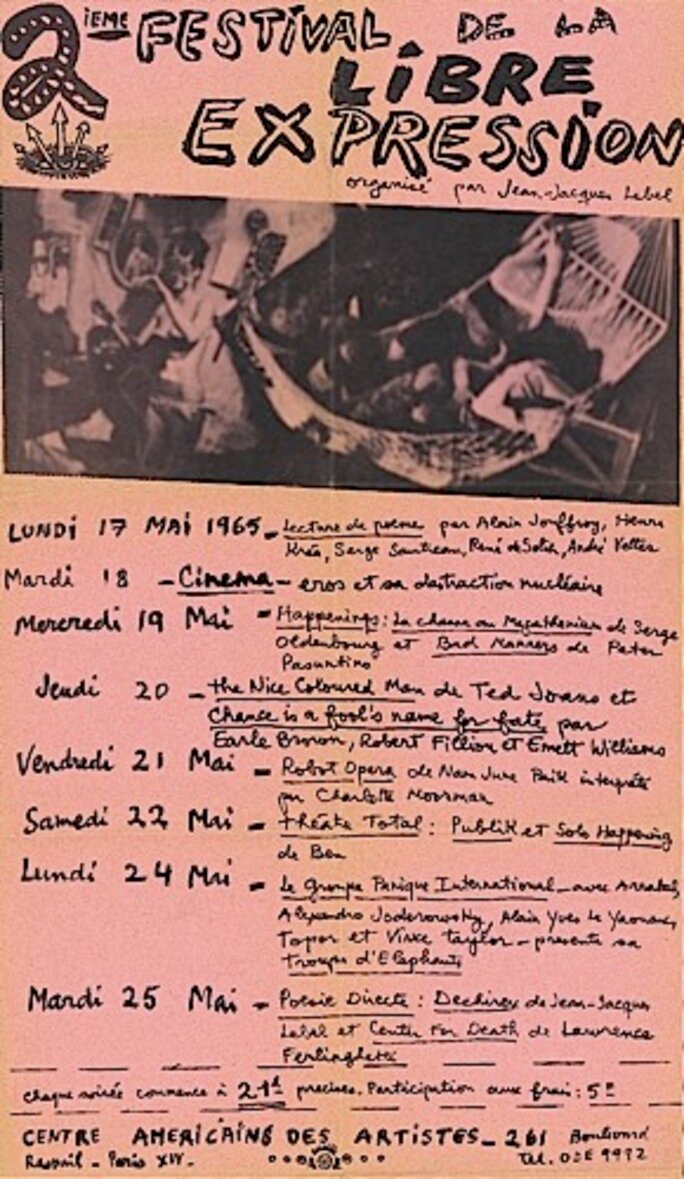 2ieme FESTIVAL DE LA
LiBRE
EXPRESSiON
organisé par Jean-Jacques Lebel
LUNDI 17 MAI 1965 - Lecture de poème par Alain Jouffroy, Henri
Kréa, Serge Sautreau, René de Solier, André Velter
Mardi 18 - Cinema - eros et sa destraction nucléaire
Mercredi 19 Mai - Happenings: La chance au de Serge
Oldenbourg et Bad Manners de Peter
Jeudi 20 - the Nice Coloured Man de Ted Joans et
Chance is a fool's name for fate par
Earle Brown, Robert Fillion et Emett Williams
Vendredi 21 Mai - Robot Opera de Nam June Paik interprété
par Charlotte Moorman
Samedi 22 Mai - théâtre Total: Publik et Solo Happening
de Ben
Lundi 24 Mai - Le groupe Panique International - avec Arrabal,
Alexandro Jodorowsky, Alain Yves Le Yaouanc,
Topor et Vince taylor - presente sa
Troupe d'Elephants
Mardi 25 Mai - Poesie Directe: Dechirex de Jean-Jacques
Lebel et Center For Death de Lawrence
Ferlinghetti
chaque soirée commence à 21h précises. Participation aux frais: 5
CENTRE AMERICAINS DES ARTISTES - 261 Boulevard
Raspail - Paris XIV. TEL. ODE 9992